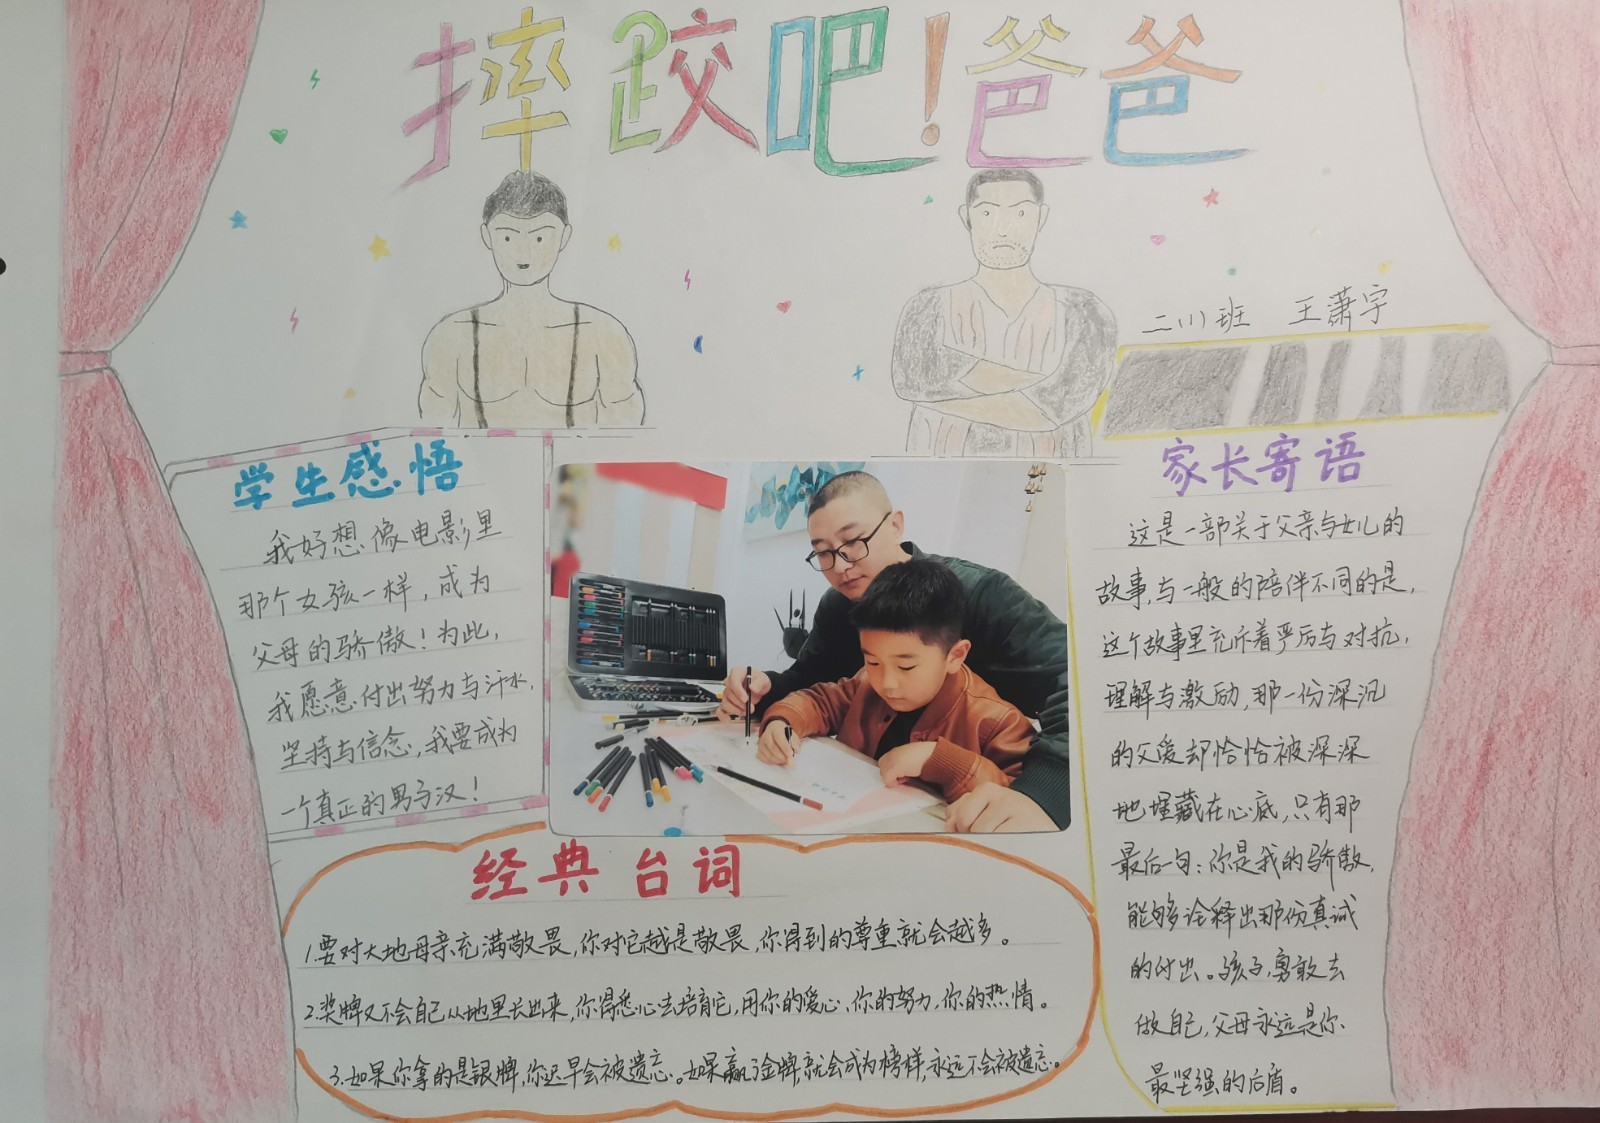 摔跤吧！爸爸
二(1)班 王萧宇
学生感悟
我好想像电影里
那个女孩一样，成为
父母的骄傲！为此，
我愿意付出努力与汗水，
坚持与信念，我要成为
一个真正的男子汉！
家长寄语
这是一部关于父亲与女儿的
故事，与一般的陪伴不同的是，
这个故事里充斥着严厉与对抗，
理解与激励，那一份深沉
的父爱却恰恰被深深
地埋藏在心底，只有那
最后一句：你是我的骄傲，
能够诠释出那份真诚
的付出。孩子，勇敢去
做自己，父母永远是你
最坚强的后盾。
经典台词
1.要对大地母亲充满敬畏，你对它越是敬畏，你得到的尊重就会越多。
2.奖牌又不会自己从地里长出来，你得悉心去培育它，用你的爱心、你的努力，你的热情。
3.如果你拿的是银牌，你迟早会被遗忘。如果赢了金牌就会成为榜样，永远不会被遗忘。